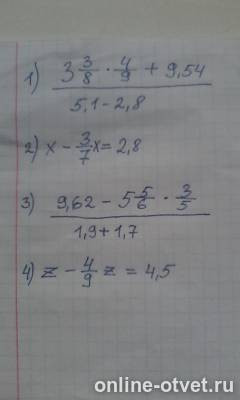 1) 3 3/8 · 4/9 + 9,54
5,1 - 2,8
2) x - 3/7 x = 2,8
3) 9,62 - 5 5/6 · 3/5
1,9 + 1,7
4) z - 4/9 z = 4,5
online-otvet.ru